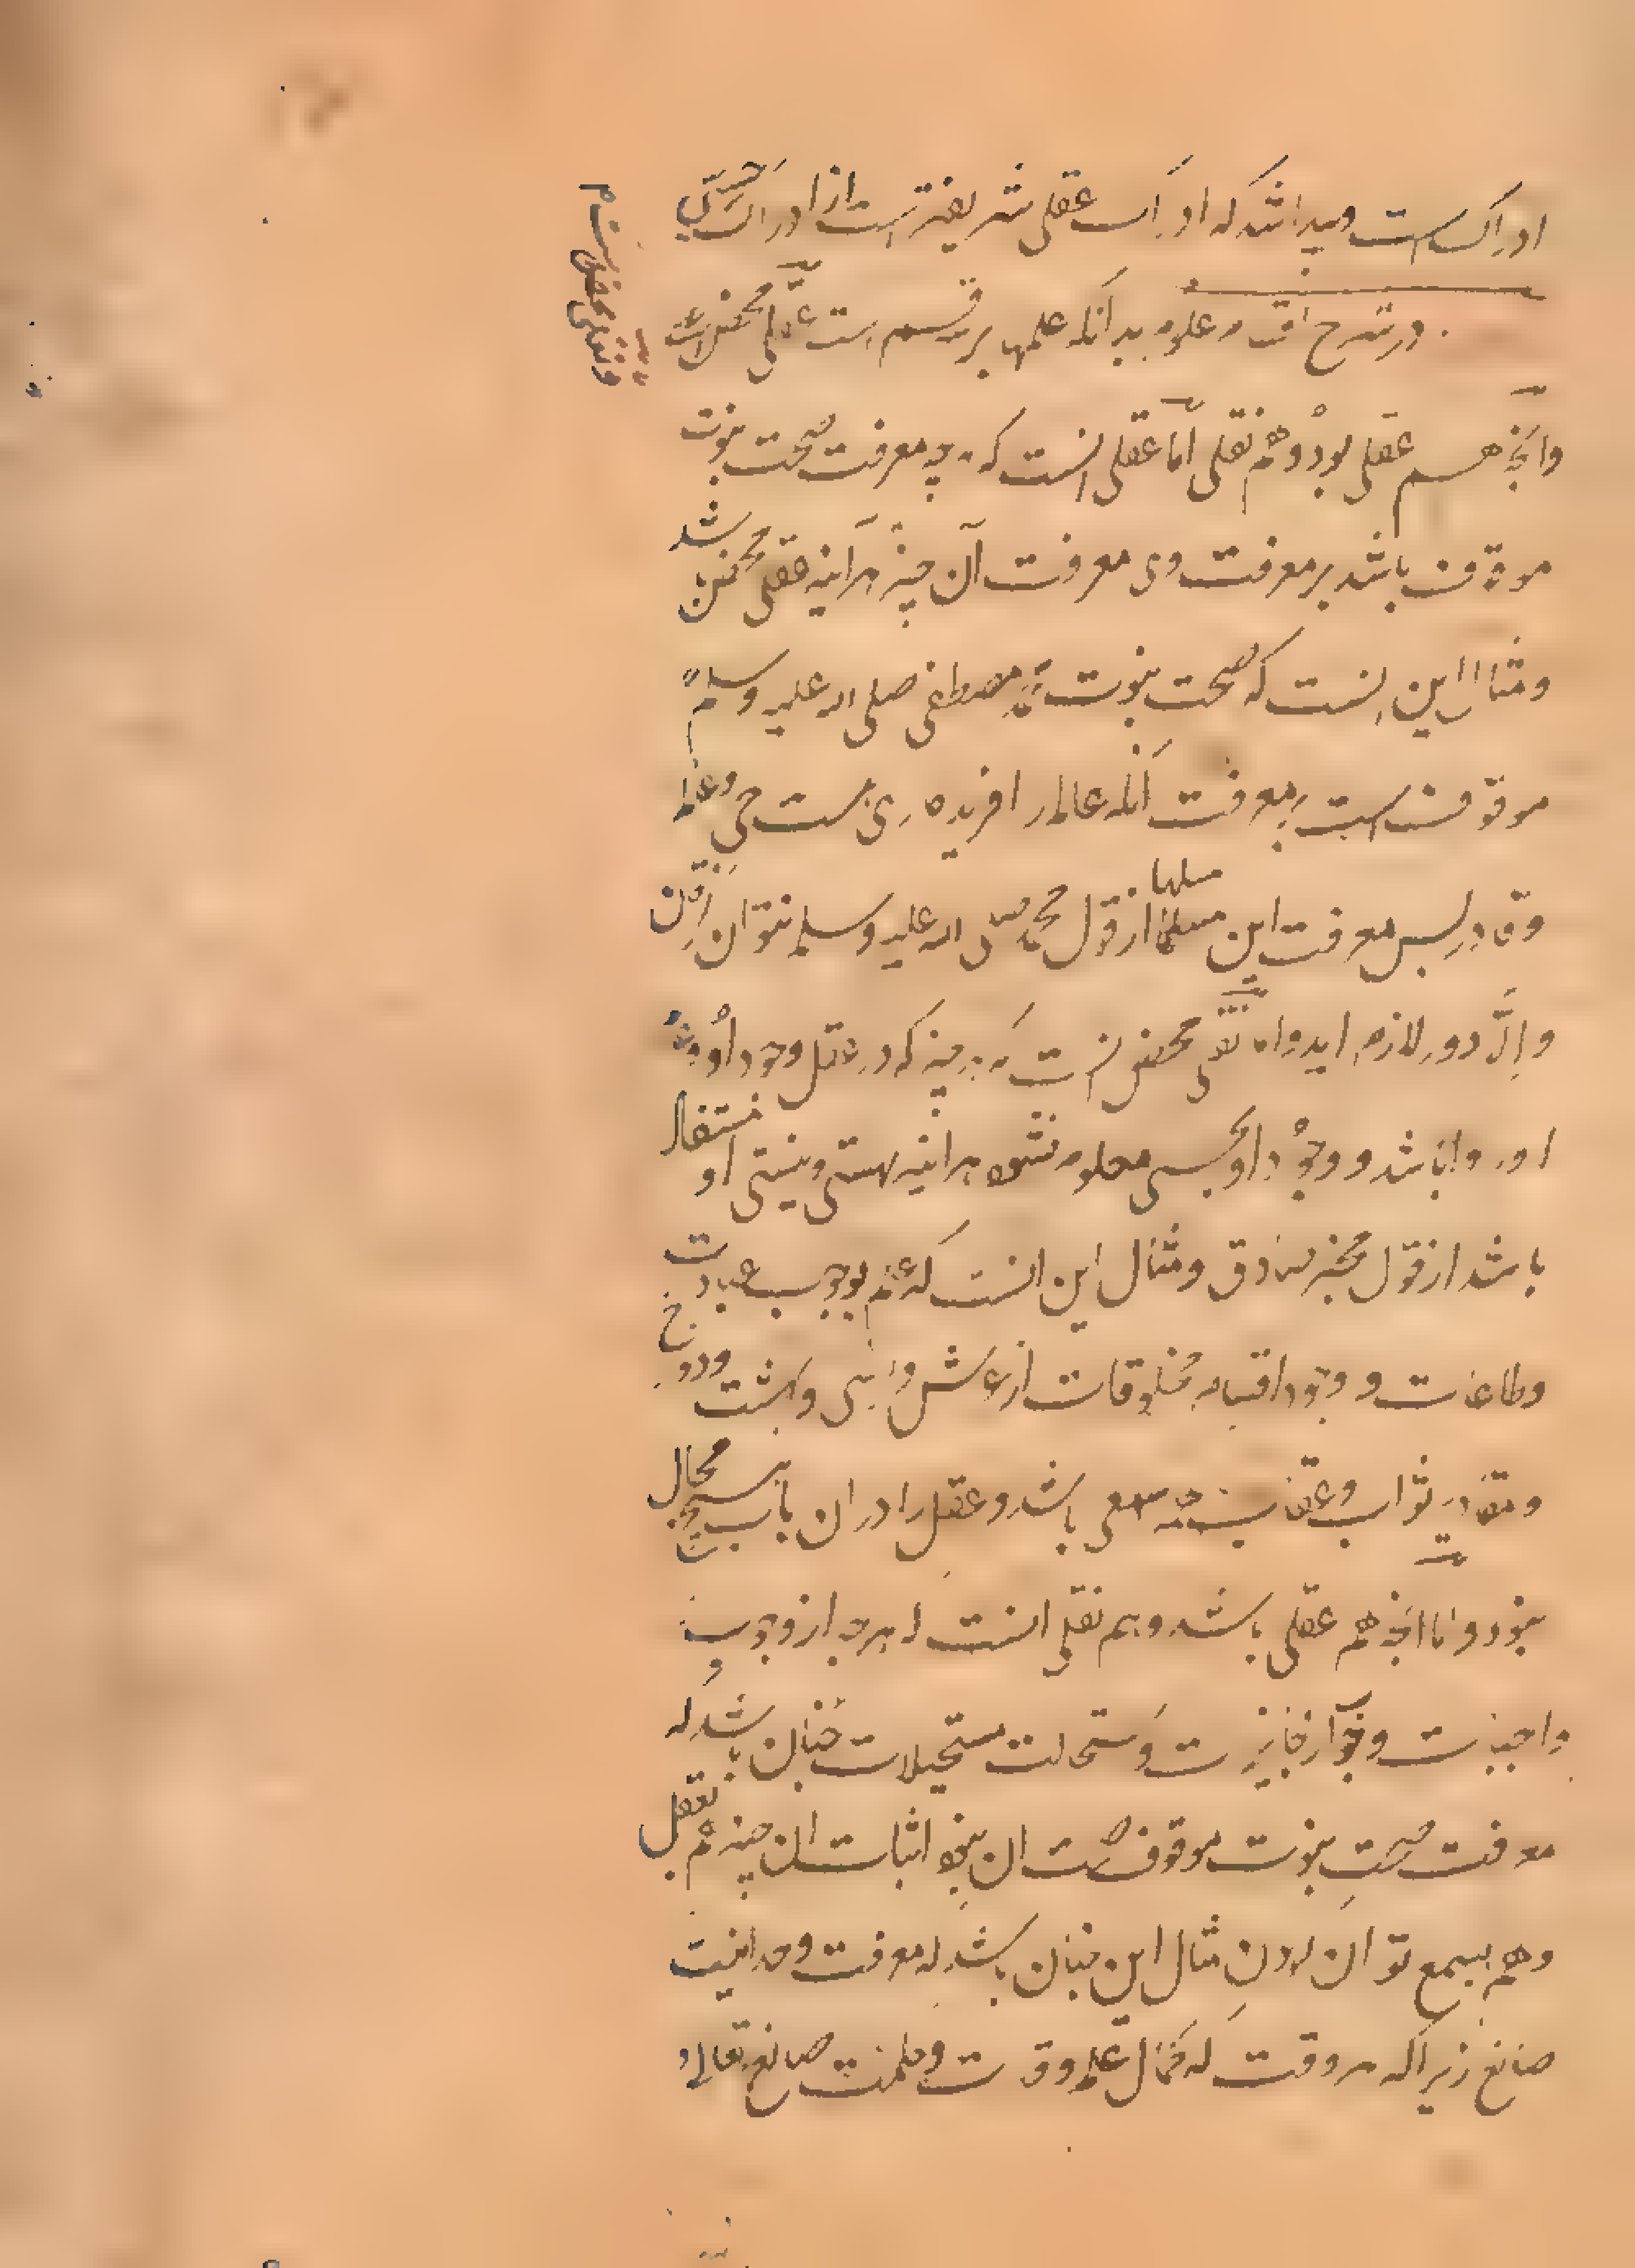 ادراکست و پیدا شد که ادراک عقلی شریفترست از ادراک حسی
در شرح اقسام علوم بدانکه علمها بر سه قسم است عقلی محض است
و نقلی محض
وانچ هم عقلی بود و هم نقلی اما عقلی انست که هرچه معرفت صحت نبوت
موقوف باشد بر معرفت وی معرفت آن چیز هرآینه عقلی محض باشد
و مثال این انست که صحت نبوت محمد مصطفی صلی الله علیه وسلم
موقوفست بر معرفت آنکه عالم را افریده ری هست حی و عالم
و قادر پس معرفت این مسلها از قول محمد صلی الله علیه وسلم نتوان
مسلها
وإلّا دور لازم اید واما نقلی محض انست که هر چیز که در عقل وجود او و عدم
او روا باشد و وجود او بحسی معلوم نشود هراینه هستی و نیستی او
باشد از قول مخبر صادق و مثال این انست که علم بوجوب عبادت
و طاعات و وجود اقسام مخلوقات از عرش و کرسی و بهشت و دوزخ
و مقادیر ثواب و عقاب همه سمعی باشد و عقل را در ان باب هیچ مجال
نبود و اما انچ هم عقلی باشد و هم نقلی انست که هرچه از وجوب
واجبات و جواز جایزات و استحالت مستحیلات چنان باشد که
معرفت صحت نبوت موقوف صحت ان نبود اثبات ان چیز هم بعقل
و هم بسمع توان کردن مثال این چنان باشد که معرفت وحدانیت
صانع زیرا که هر وقت که کمال علم و قدرت و حکمت صانع تعالی